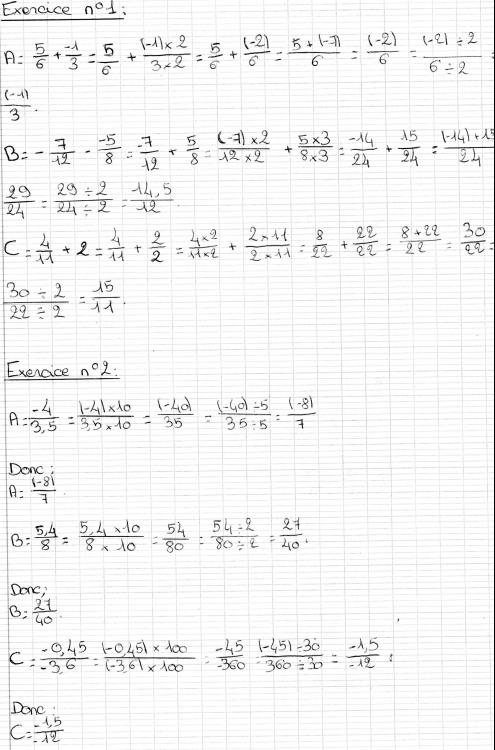 Exercice n°1:
A= 5/6 + -1/3 = 5/6 + (-1)×2/3×2 = 5/6 + (-2)/6 = 5+(-7)/6 = (-2)/6 = (-2)÷2/6÷2 =
(-1)/3.
B= - 7/12 - -5/8 = -7/12 + 5/8 = (-7)×2/12×2 + 5×3/8×3 = -14/24 + 15/24 = (-14)+15/24
29/24 = 29÷2/24÷2 = 14,5/12.
C= 4/11 + 2 = 4/11 + 2/2 = 4×2/11×2 + 2×11/2×11 = 8/22 + 22/22 = 8+22/22 = 30/22 =
30÷2/22÷2 = 15/11.
Exercice n°2:
A= -4/3,5 = (-4)×10/3,5×10 = (-40)/35 = (-40)÷5/35÷5 = (-8)/7
Donc;
A= (-8)/7.
B= 5,4/8 = 5,4×10/8×10 = 54/80 = 54÷2/80÷2 = 27/40.
Donc;
B= 27/40.
C= -0,45/-3,6 = (-0,45)×100/(-3,6)×100 = -45/-360 = (-45)÷30/360÷30 = -1,5/-12;
Donc;
C= -1,5/12